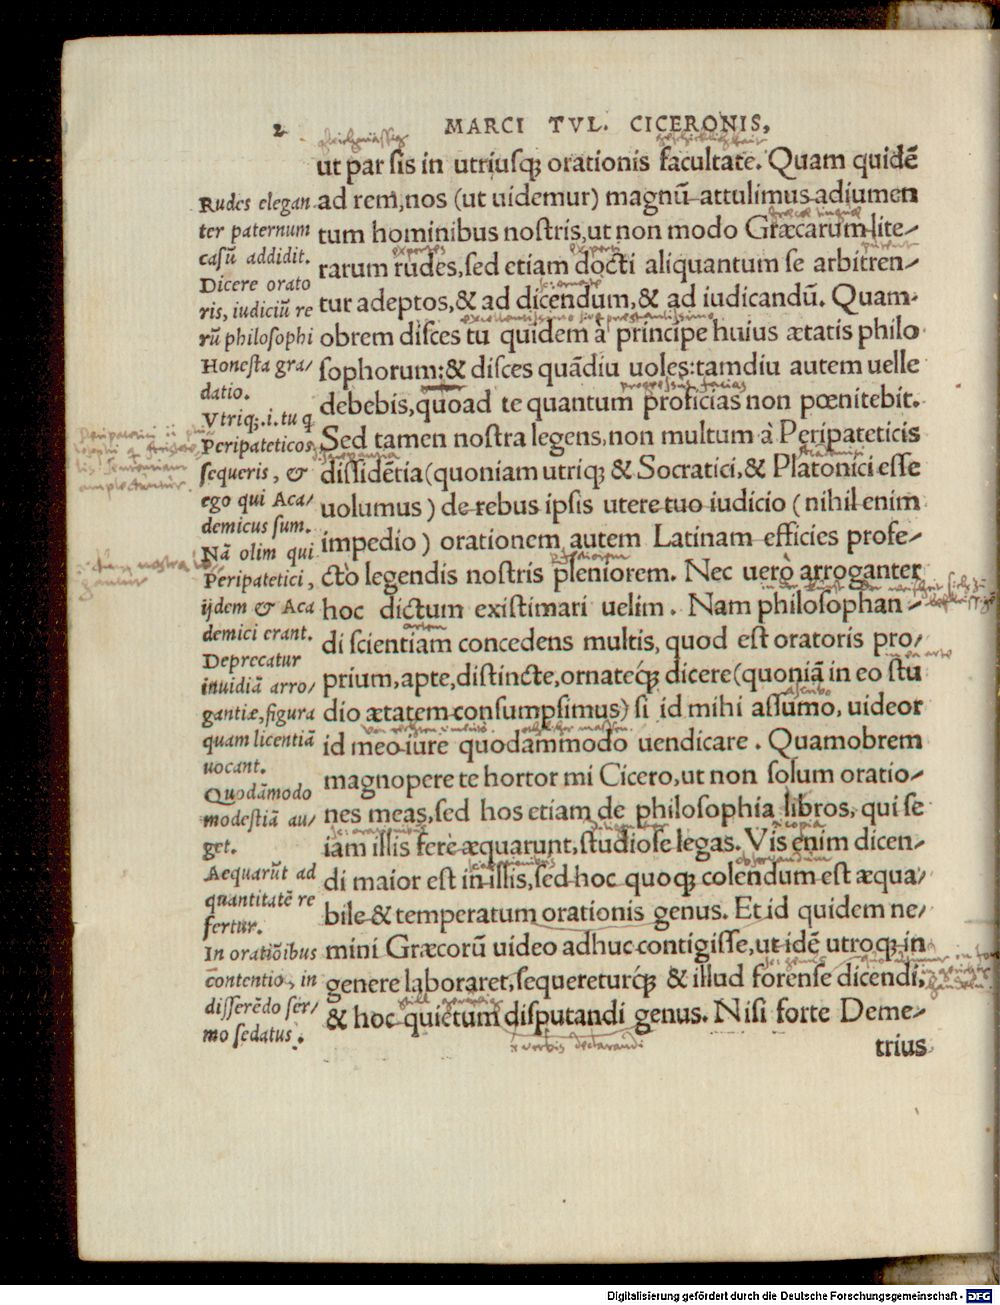 2 MARCI TVL. CICERONIS,
ut par sis in utriusq; orationis facultate. Quam quidē
ad rem, nos (ut uidemur) magnū attulimus adiumen
tum hominibus nostris, ut non modo Græcarum lite-
rarum rudes, sed etiam docti aliquantum se arbitren-
tur adeptos, & ad dicendum, & ad iudicandū. Quam-
obrem disces tu quidem à principe huius ætatis philo
sophorum: & disces quādiu uoles: tamdiu autem uelle
debebis, quoad te quantum proficias non pœnitebit.
Sed tamen nostra legens, non multum à Peripateticis
dissidētia (quoniam utriq; & Socratici, & Platonici esse
uolumus) de rebus ipsis utere tuo iudicio (nihil enim
impedio) orationem autem Latinam efficies profe-
cto legendis nostris pleniorem. Nec uerò arroganter
hoc dictum existimari uelim. Nam philosophan-
di scientiam concedens multis, quod est oratoris pro/
prium, apte, distincte, ornateq́; dicere (quoniā in eo stu
dio ætatem consumpsimus) si id mihi assumo, uideor
id meo iure quodammodo uendicare. Quamobrem
magnopere te hortor mi Cicero, ut non solum oratio-
nes meas, sed hos etiam de philosophia libros, qui se
iam illis ferè æquarunt, studiose legas. Vis enim dicen-
di maior est in illis, sed hoc quoq; colendum est æqua/
bile & temperatum orationis genus. Et id quidem ne/
mini Græcorū uideo adhuc contigisse, ut idē utroq; in
genere laboraret, sequereturq́; & illud forense dicendi,
& hoc quietum disputandi genus. Nisi forte Deme-
trius
Rudes elegan
ter paternum
casū addidit.
Dicere orato
ris, iudiciū re
rū philosophi
Honesta gra/
datio.
Vtriq; .i. tu q
Peripateticos
sequeris, &
ego qui Aca/
demicus sum.
Nā olim qui
Peripatetici,
ijdem & Aca
demici erant.
Deprecatur
inuidiā arro/
gantiæ, figura
quam licentiā
uocant.
Quodāmodo
modestiā au/
get.
Aequarūt ad
quantitatē re
fertur.
In oratiōibus
cōntentio, in
disserēdo ser/
mo sedatus.
Digitalisierung gefördert durch die Deutsche Forschungsgemeinschaft - DFG